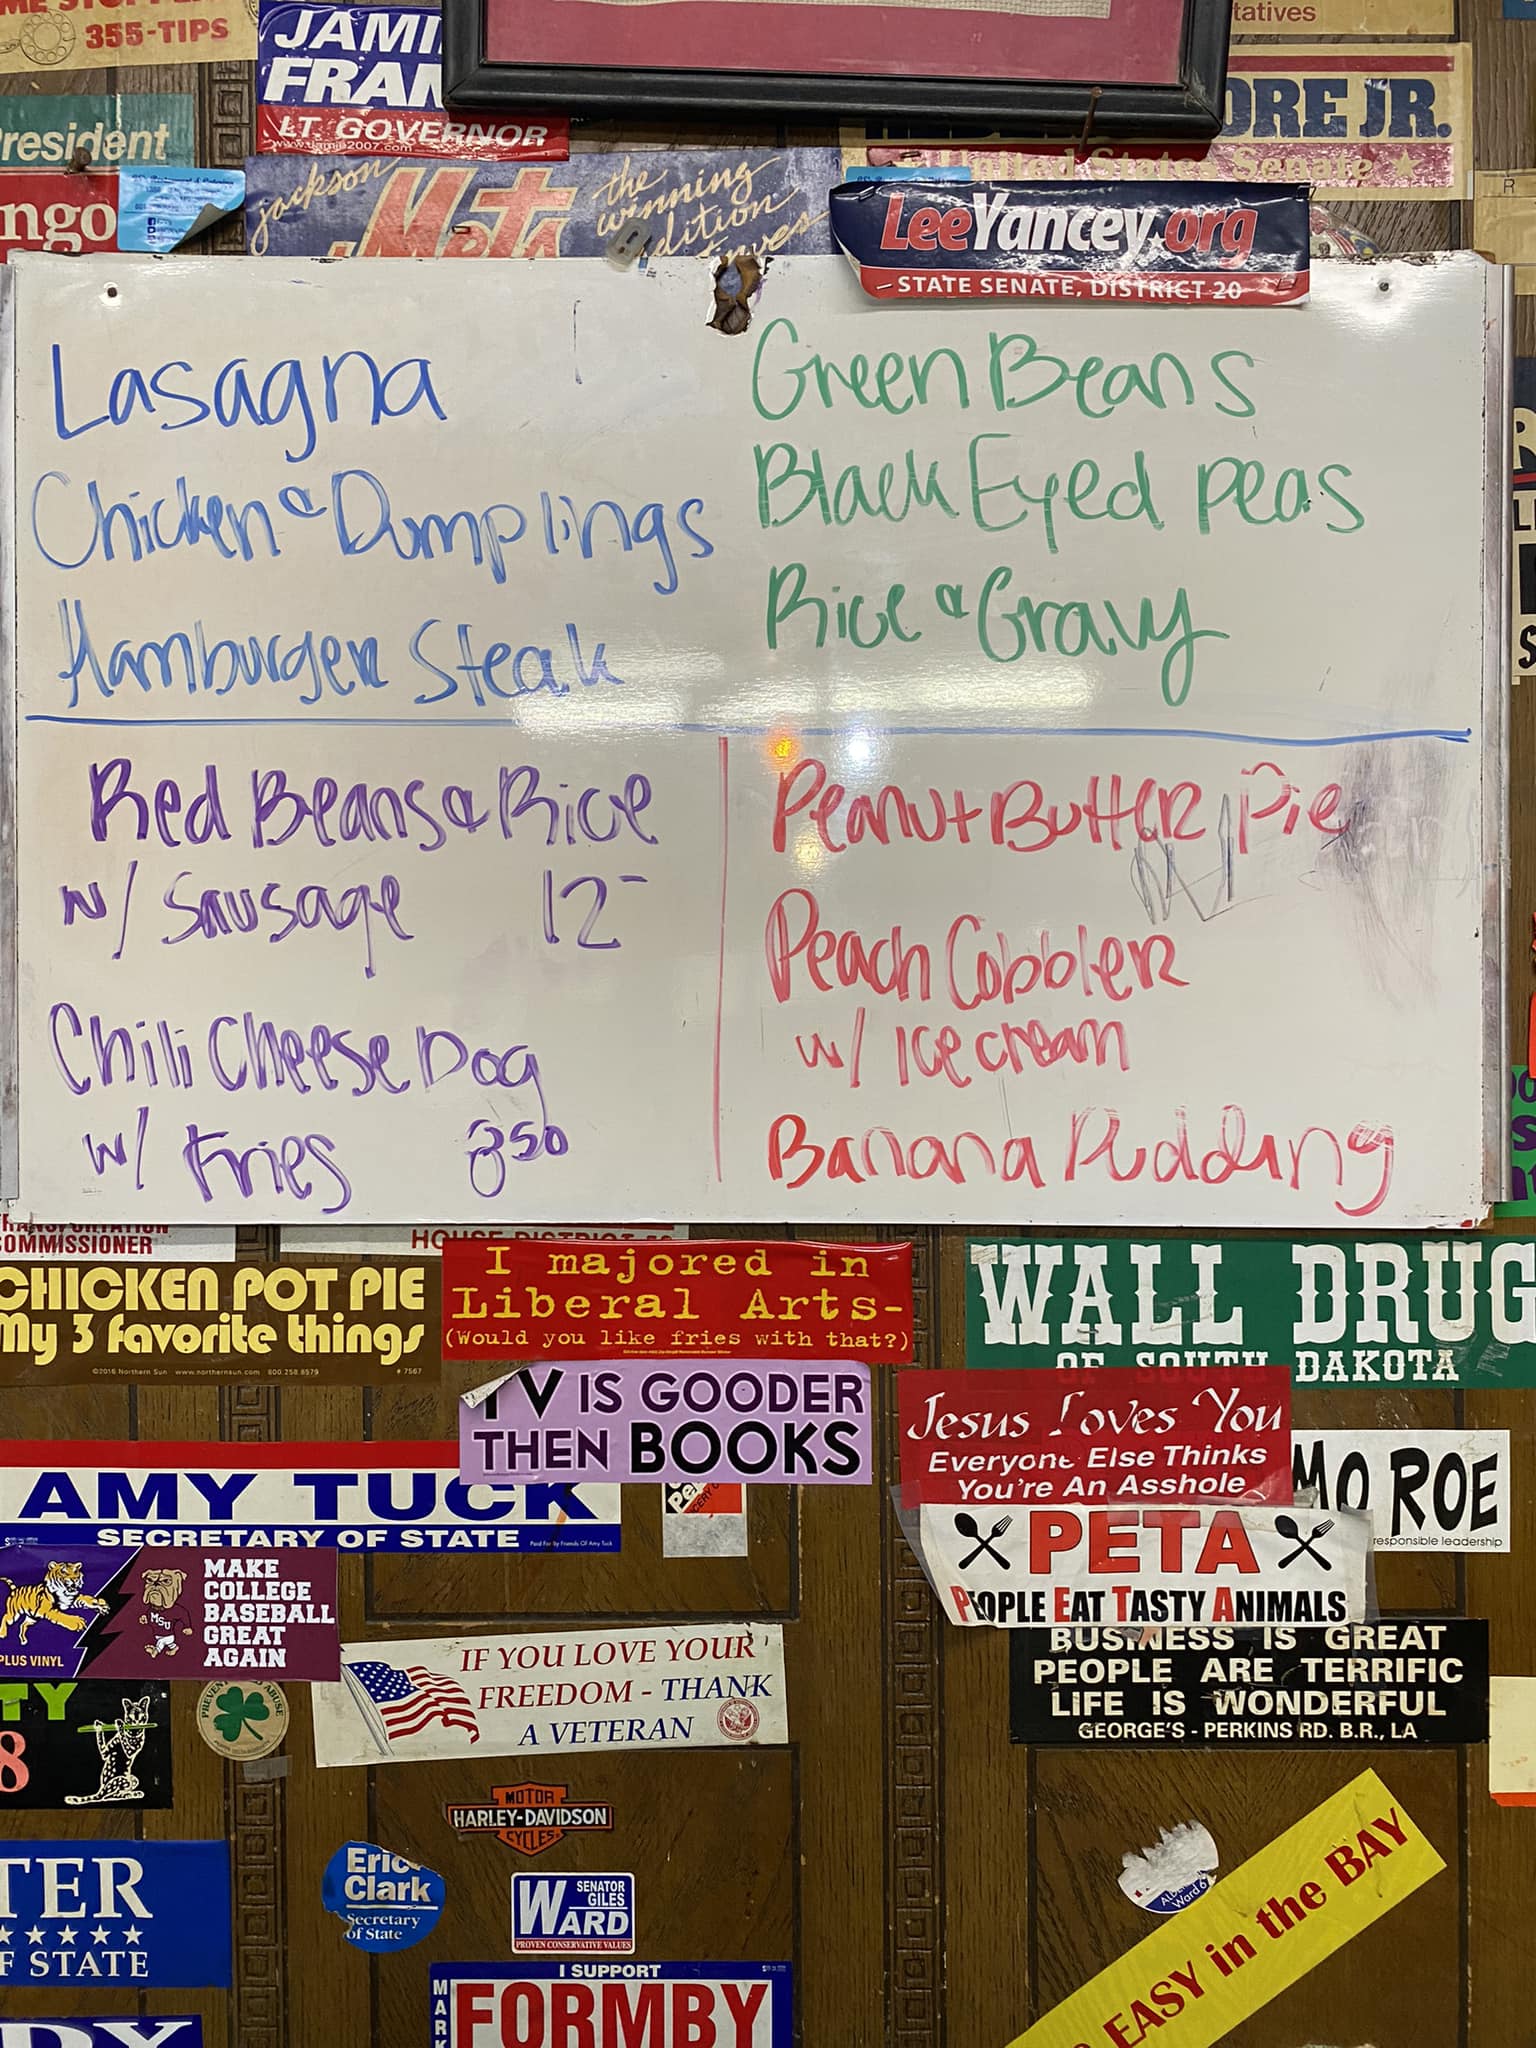 355-TIPS
JAMI
FRAN
LT. GOVERNOR
www.tjamie2007.com
tatives
ORE JR.
United States Senate
resident
ngo
jackson
the
winning
edition
LeeYancey.org
STATE SENATE, DISTRICT 20
Lasagna
Chicken & Dumplings
Hamburger Steak
Green Beans
Black Eyed Peas
Rice & Gravy
Red Beans & Rice
w/ Sausage 12-
Chili Cheese Dog
w/ Fries 850
Peanut Butter Pie
Peach Cobbler
w/ Ice cream
Banana Pudding
COMMISSIONER
CHICKEN POT PIE
My 3 favorite things
©2016 Northern Sun www.northernsun.com 800.258.8579 #7567
I majored in
Liberal Arts-
(Would you like fries with that?)
WALL DRUG
OF SOUTH DAKOTA
TV IS GOODER
THEN BOOKS
Jesus Loves You
Everyone Else Thinks
You're An Asshole
AMY TUCK
SECRETARY OF STATE
Paid For By Friends Of Amy Tuck
MO ROE
responsible leadership
PETA
PEOPLE EAT TASTY ANIMALS
MSU
MAKE
COLLEGE
BASEBALL
GREAT
AGAIN
PLUS VINYL
IF YOU LOVE YOUR
FREEDOM - THANK
A VETERAN
BUSINESS IS GREAT
PEOPLE ARE TERRIFIC
LIFE IS WONDERFUL
GEORGE'S - PERKINS RD. B.R., LA
TY
8
MOTOR
HARLEY-DAVIDSON
CYCLES
TER
F STATE
Eric
Clark
Secretary
of State
SENATOR
GILES
WARD
PROVEN CONSERVATIVE VALUES
Ward 6
EASY in the BAY
I SUPPORT
MARK
FORMBY